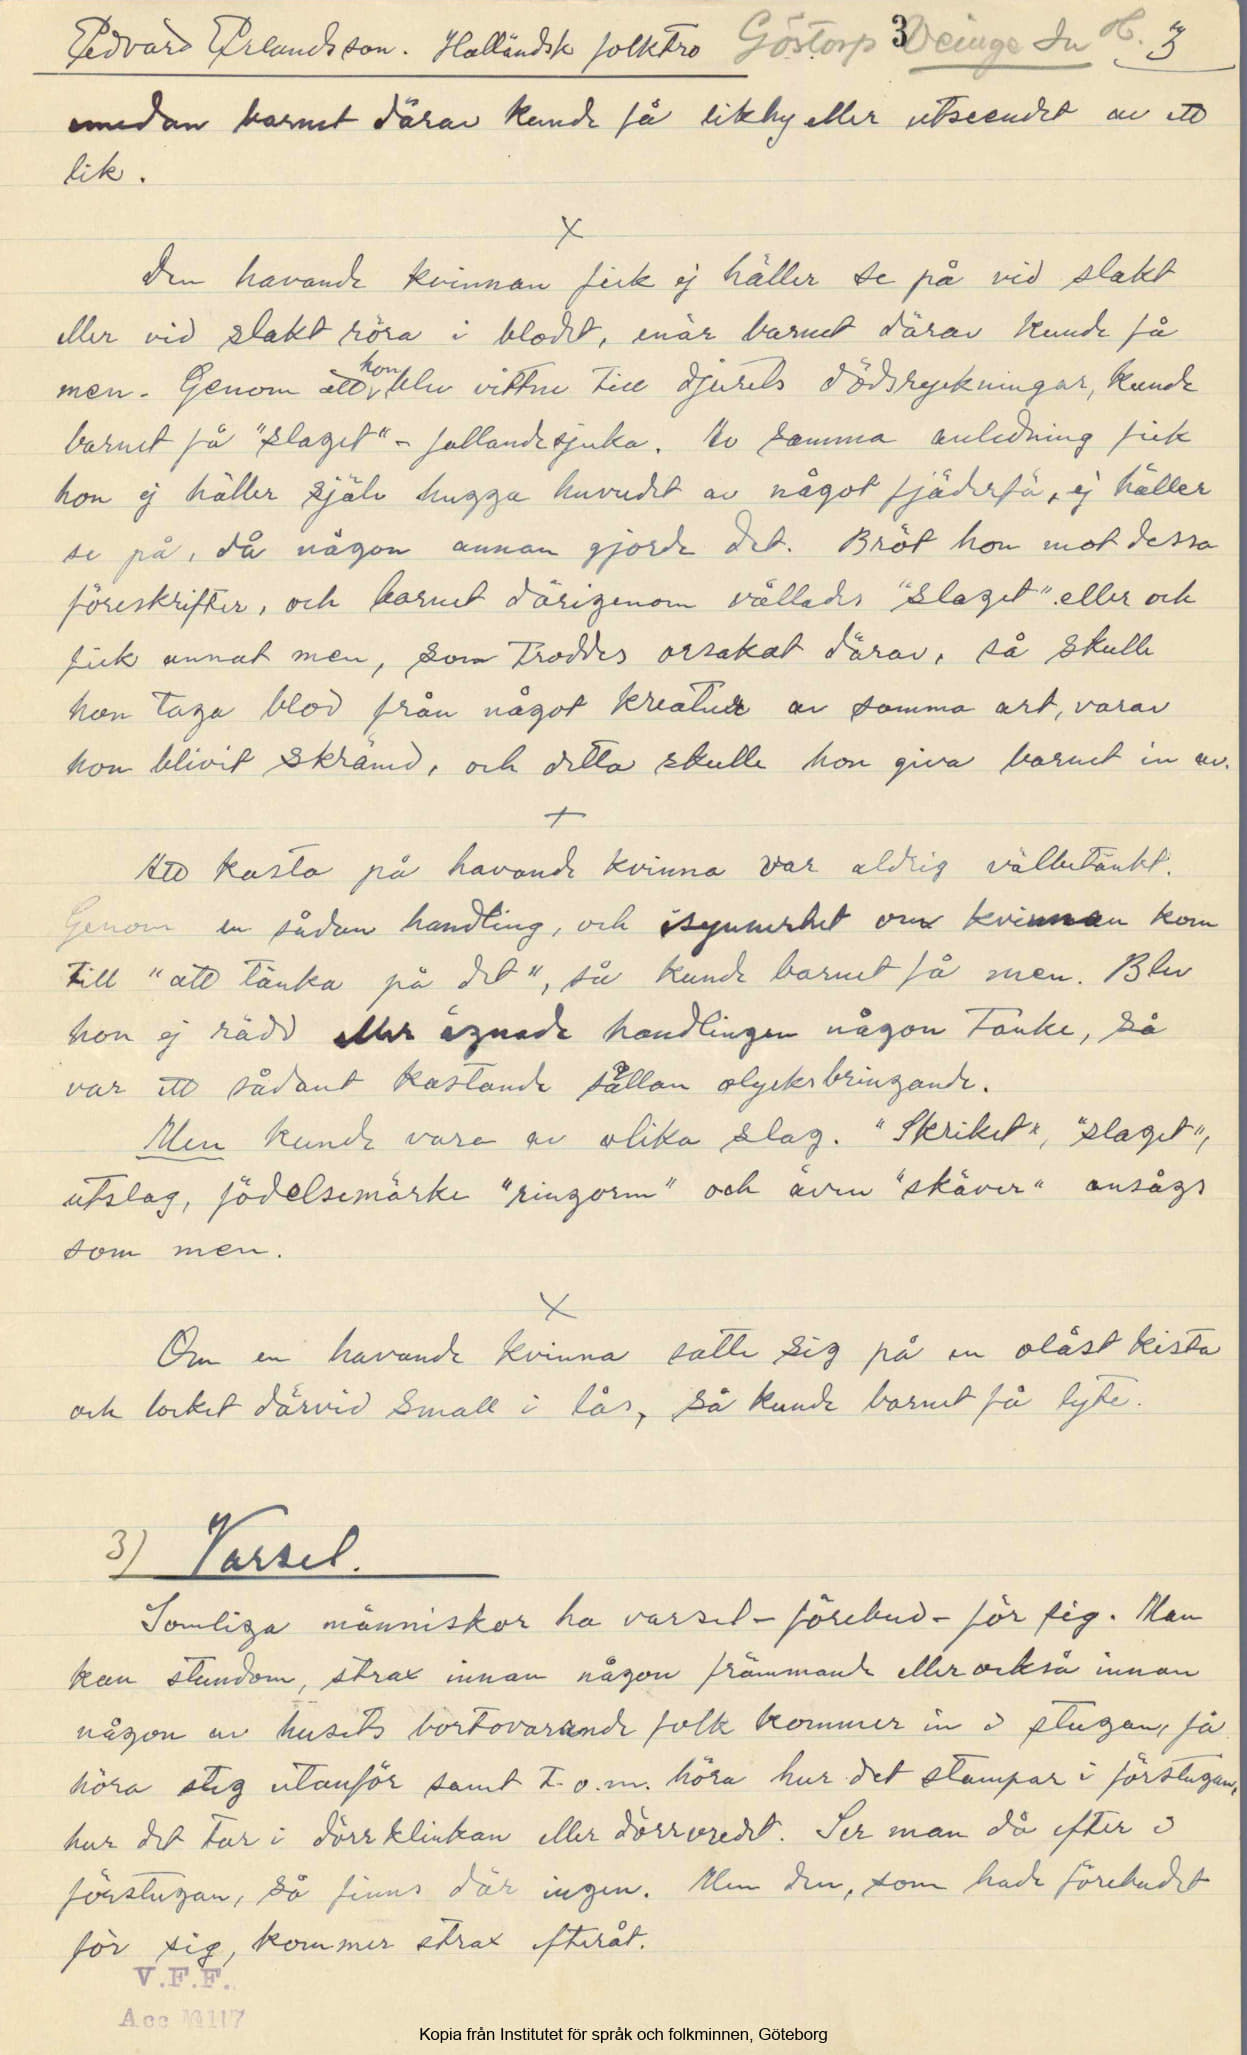 Edvard Erlandsson. Halländsk folktro Göstorp 3 Veinge sn H. 3
emedan barnet därav kunde få likhy eller utseendet av ett
lik.
x
Den havande kvinnan fick ej häller se på vid slakt
eller vid slakt röra i blodet, enär barnet därav kunde få
men. Genom att hon blev vittne till djurets dödsryckningar, kunde
barnet få "slaget" - fallandesjuka. Av samma anledning fick
hon ej häller själv hugga huvudet av något fjäderfä, ej häller
se på, då någon annan gjorde det. Bröt hon mot dessa
föreskrifter, och barnet därigenom vållades "slaget" eller och
fick annat men, som troddes orsakat därav, så skulle
hon taga blod från något kreatur av samma art, varav
hon blivit skrämd, och detta skulle hon giva barnet in av.
+
Att kasta på havande kvinna var aldrig välbetänkt.
Genom en sådan handling, och isynnerhet om kvinnan kom
till "att tänka på det", så kunde barnet få men. Blev
hon ej rädd eller ägnade handlingen någon tanke, så
var ett sådant kastande sällan olycksbringande.
Men kunde vara av olika slag. "Skriket", "slaget",
utslag, födelsemärke "ringorm" och även "skäver" ansågs
som men.
x
Om en havande kvinna satte sig på en olåst kista
och locket därvid small i lås, så kunde barnet få lyte.
3) Varsel.
Somliga människor ha varsel - förebud - för sig. Man
kan stundom, strax innan någon främmande eller också innan
någon av husets bortovarande folk kommer in i stugan, få
höra steg utanför samt t.o.m. höra hur det stampar i förstugan,
hur det tar i dörrklinkan eller dörrvredet. Ser man då efter i
förstugan, så finns där ingen. Men den, som hade förebudet
för sig, kommer strax efteråt.
V.F.F.
Acc № 117
Kopia från Institutet för språk och folkminnen, Göteborg